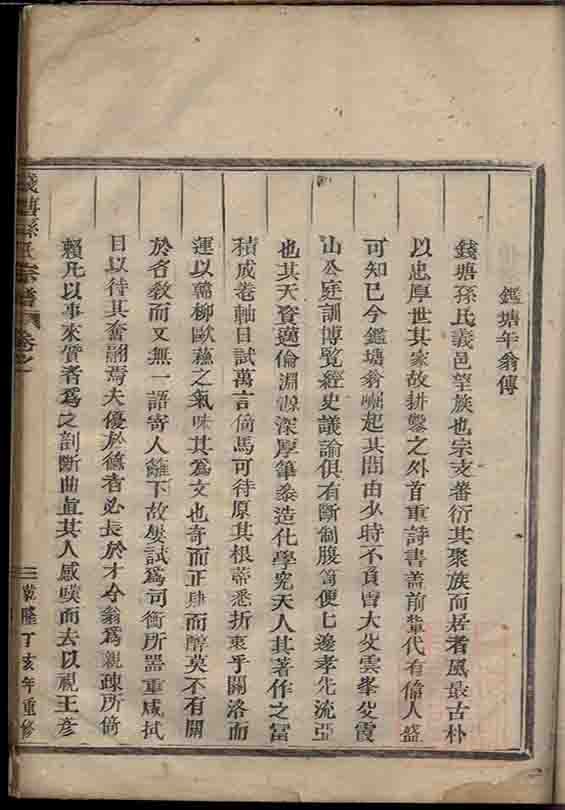 鑑塘年翁傳
錢塘孫氏義邑望族也宗支蕃衍其聚族而居者風最古朴
以忠厚世其家故耕鑿之外首重詩書蓋前輩代有偉人盛
可知已今鑑塘翁崛起其間由少時不負曾大父雲峯父霞
山公庭訓博覽經史議論俱有斷制腹笥便七邊孝先流亞
也其天資邁倫淵源深厚筆參造化學究天人其著作之富
積成卷軸日試萬言倚馬可待原其根蒂悉折衷乎關洛而
運以韓柳歐蘇之氣味其爲文也奇而正肆而醇莫不有關
於名教而又無一語寄人籬下故屢試爲司衡所器重咸拭
目以待其奮翮焉夫優於德者必長於才今翁爲親疎所倚
賴凡以事來質者爲之剖斷曲直其人感嘆而去以視王彥
錢塘孫氏宗譜 卷之
三 乾隆丁亥年重修